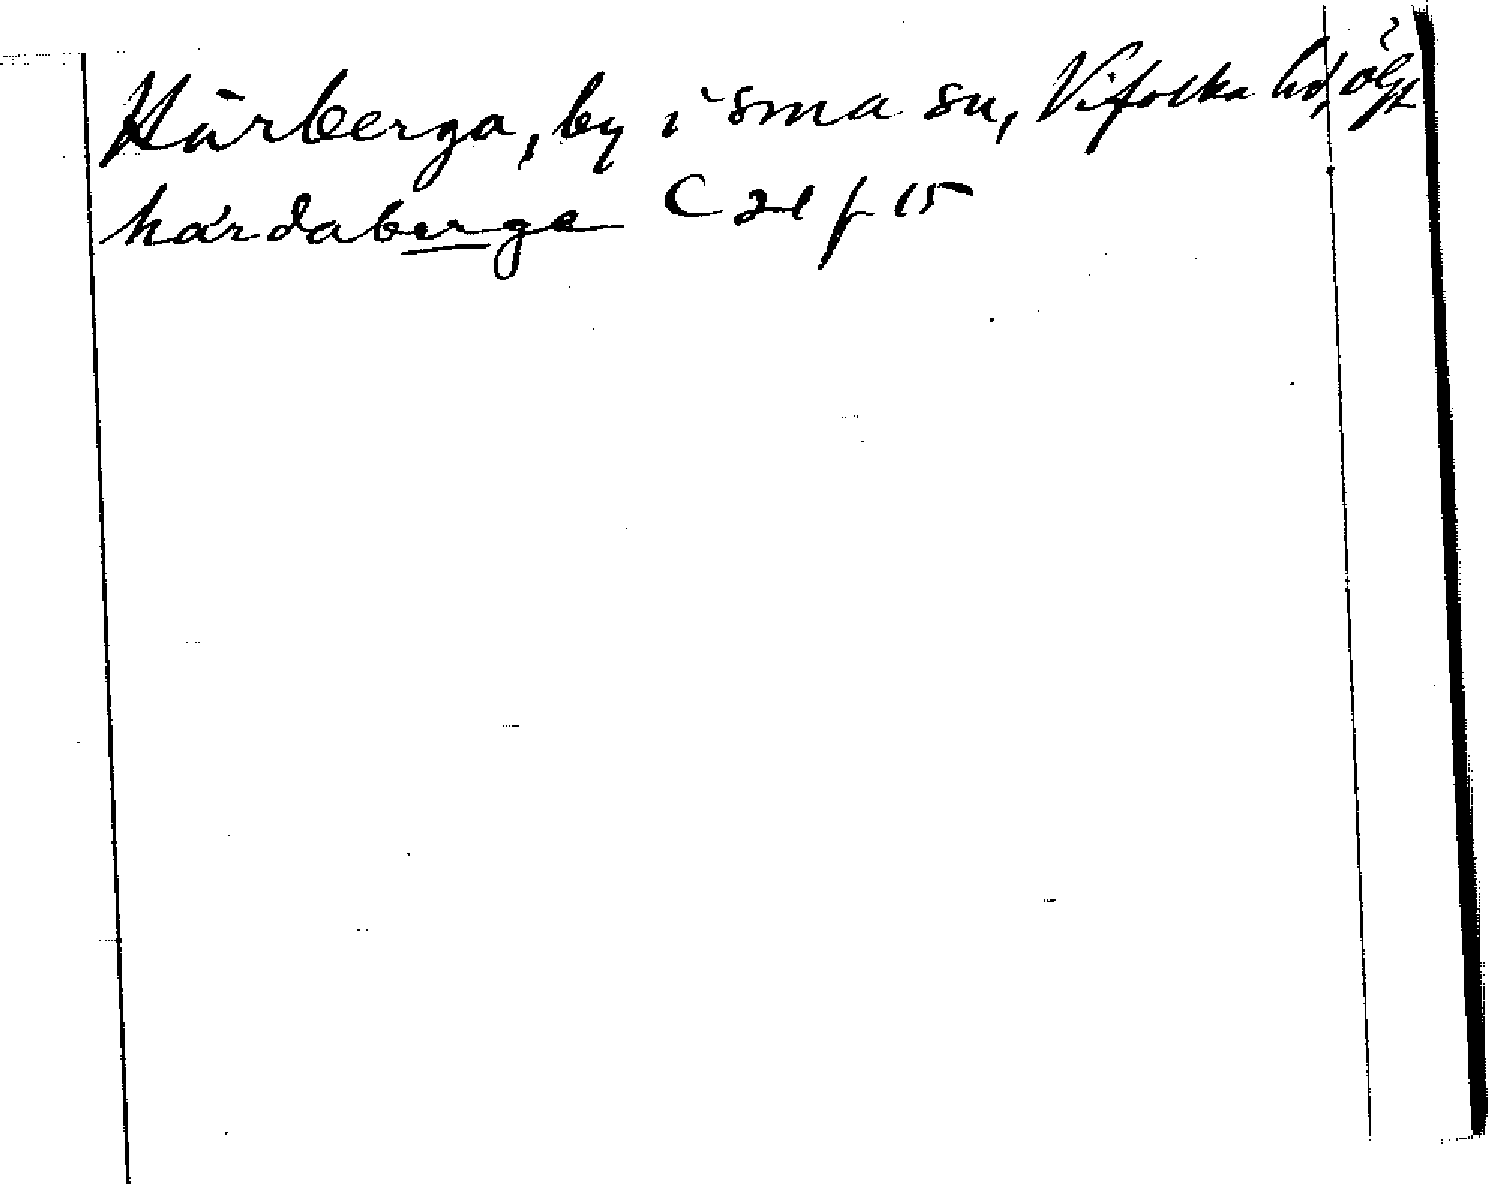 Härberga, by i sma sn, Vifolka hd, Ögt
härdaberge C 21 f 15